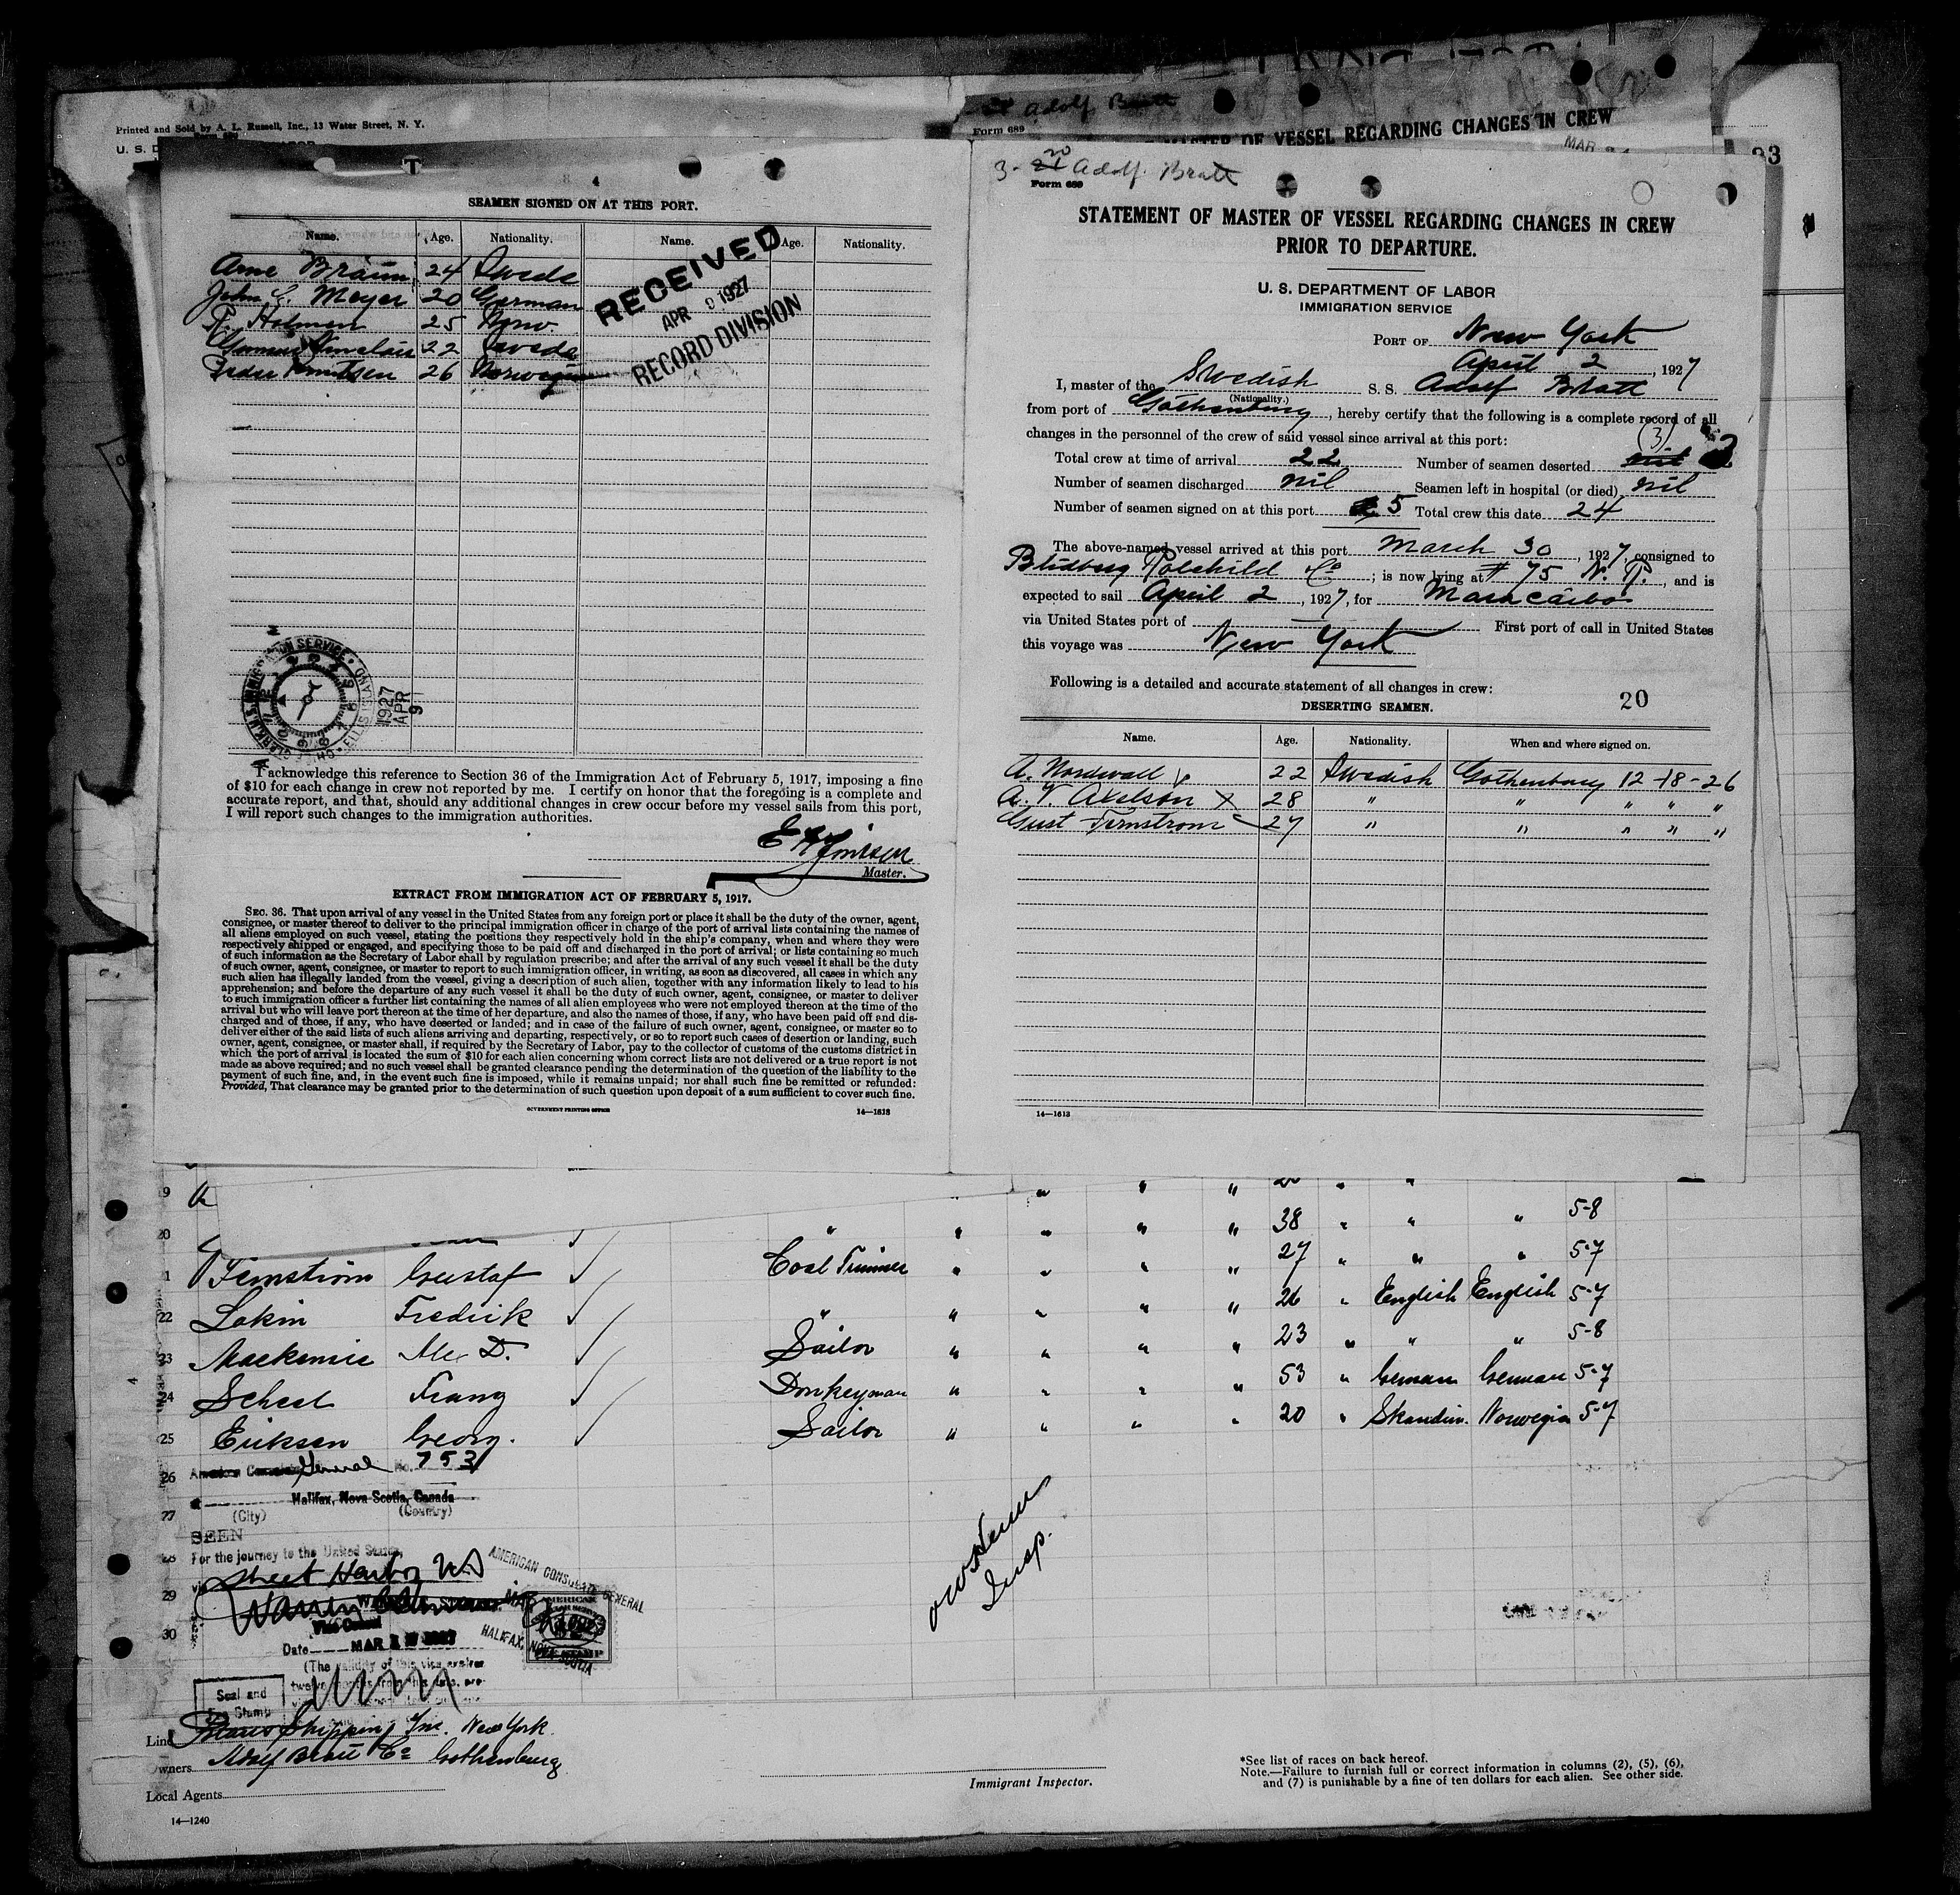 Printed and Sold by A. L. Russell, Inc., 13 Water Street, N. Y.
Adolf Bratt
Form 689
MASTER OF VESSEL REGARDING CHANGES IN CREW
4
SEAMEN SIGNED ON AT THIS PORT.
Name. Age. Nationality. Name. Age. Nationality.
Arne Braun 24 Swede
John C. Meyer 20 German
R. Holmen 25 Norw
22 Swede
Peder Knutsen 26 Norwegian
RECEIVED
APR 9 1927
RECORD DIVISION
1927
APR
9
I acknowledge this reference to Section 36 of the Immigration Act of February 5, 1917, imposing a fine
of $10 for each change in crew not reported by me. I certify on honor that the foregoing is a complete and
accurate report, and that, should any additional changes in crew occur before my vessel sails from this port,
I will report such changes to the immigration authorities.
Master.
EXTRACT FROM IMMIGRATION ACT OF FEBRUARY 5, 1917.
SEC. 36. That upon arrival of any vessel in the United States from any foreign port or place it shall be the duty of the owner, agent,
consignee, or master thereof to deliver to the principal immigration officer in charge of the port of arrival lists containing the names of
all aliens employed on such vessel, stating the positions they respectively hold in the ship's company, when and where they were
respectively shipped or engaged, and specifying those to be paid off and discharged in the port of arrival; or lists containing so much
of such information as the Secretary of Labor shall by regulation prescribe; and after the arrival of any such vessel it shall be the duty
of such owner, agent, consignee, or master to report to such immigration officer, in writing, as soon as discovered, all cases in which any
such alien has illegally landed from the vessel, giving a description of such alien, together with any information likely to lead to his
apprehension; and before the departure of any such vessel it shall be the duty of such owner, agent, consignee, or master to deliver
to such immigration officer a further list containing the names of all alien employees who were not employed thereon at the time of the
arrival but who will leave port thereon at the time of her departure, and also the names of those, if any, who have been paid off and dis-
charged and of those, if any, who have deserted or landed; and in case of the failure of such owner, agent, consignee, or master so to
deliver either of the said lists of such aliens arriving and departing, respectively, or so to report such cases of desertion or landing, such
owner, agent, consignee, or master shall, if required by the Secretary of Labor, pay to the collector of customs of the customs district in
which the port of arrival is located the sum of $10 for each alien concerning whom correct lists are not delivered or a true report is not
made as above required; and no such vessel shall be granted clearance pending the determination of the question of the liability to the
payment of such fine, and, in the event such fine is imposed, while it remains unpaid; nor shall such fine be remitted or refunded:
Provided, That clearance may be granted prior to the determination of such question upon deposit of a sum sufficient to cover such fine.
GOVERNMENT PRINTING OFFICE 14—1613
3-20 Adolf. Bratt
Form 689
STATEMENT OF MASTER OF VESSEL REGARDING CHANGES IN CREW
PRIOR TO DEPARTURE.
U. S. DEPARTMENT OF LABOR
IMMIGRATION SERVICE
PORT OF New York
April 2, 1927
I, master of the Swedish S. S. Adolf Bratt
(Nationality.)
from port of Gothenburg, hereby certify that the following is a complete record of all
changes in the personnel of the crew of said vessel since arrival at this port:
(3)
Total crew at time of arrival 22 Number of seamen deserted nil
Number of seamen discharged nil Seamen left in hospital (or died) nil
Number of seamen signed on at this port 5 Total crew this date 24
The above-named vessel arrived at this port March 30, 1927, consigned to
Blidberg Rotchild Co; is now lying at # 75 N. R., and is
expected to sail April 2, 1927, for Maracaibo
via United States port of First port of call in United States
this voyage was New York
Following is a detailed and accurate statement of all changes in crew:
20
DESERTING SEAMEN.
Name. Age. Nationality. When and where signed on.
A. Nordwall 22 Swedish Gothenburg 12-18-26
A. V. Axelson x 28 " " " " "
Gust Fernstrom 27 " " " " "
14—1613
19
20 " " " " " 38 " " " 5-8
Fernstrom Gustaf ✓ Coal Trimmer " " " " 27 " " " 5-7
22 Lakin Fredrik ✓ " " " " " 26 " English English 5-7
23 Mackenzie Alex D. ✓ Sailor " " " " 23 " " " 5-8
24 Scheel Franz ✓ Donkeyman " " " " 53 " German German 5-7
25 Eriksen Georg. ✓ Sailor " " " " 20 " Skandin. Norwegia 5-7
26 American Consulate General No. 753
27 Halifax, Nova Scotia, Canada
(City) (Country)
SEEN
28 For the journey to the United States
via Sheet Harbor N.S.
29
Vice Consul
30
Date MAR 1927
(The validity of this visa expires
Seal and
Fee Stamp
AMERICAN CONSULATE GENERAL
HALIFAX, NOVA SCOTIA
Insp.
Line Shipping Inc. New York
Owners Adolf Bratt Co Gothenburg
Local Agents
14—1240
Immigrant Inspector.
*See list of races on back hereof.
Note.—Failure to furnish full or correct information in columns (2), (5), (6),
and (7) is punishable by a fine of ten dollars for each alien. See other side.